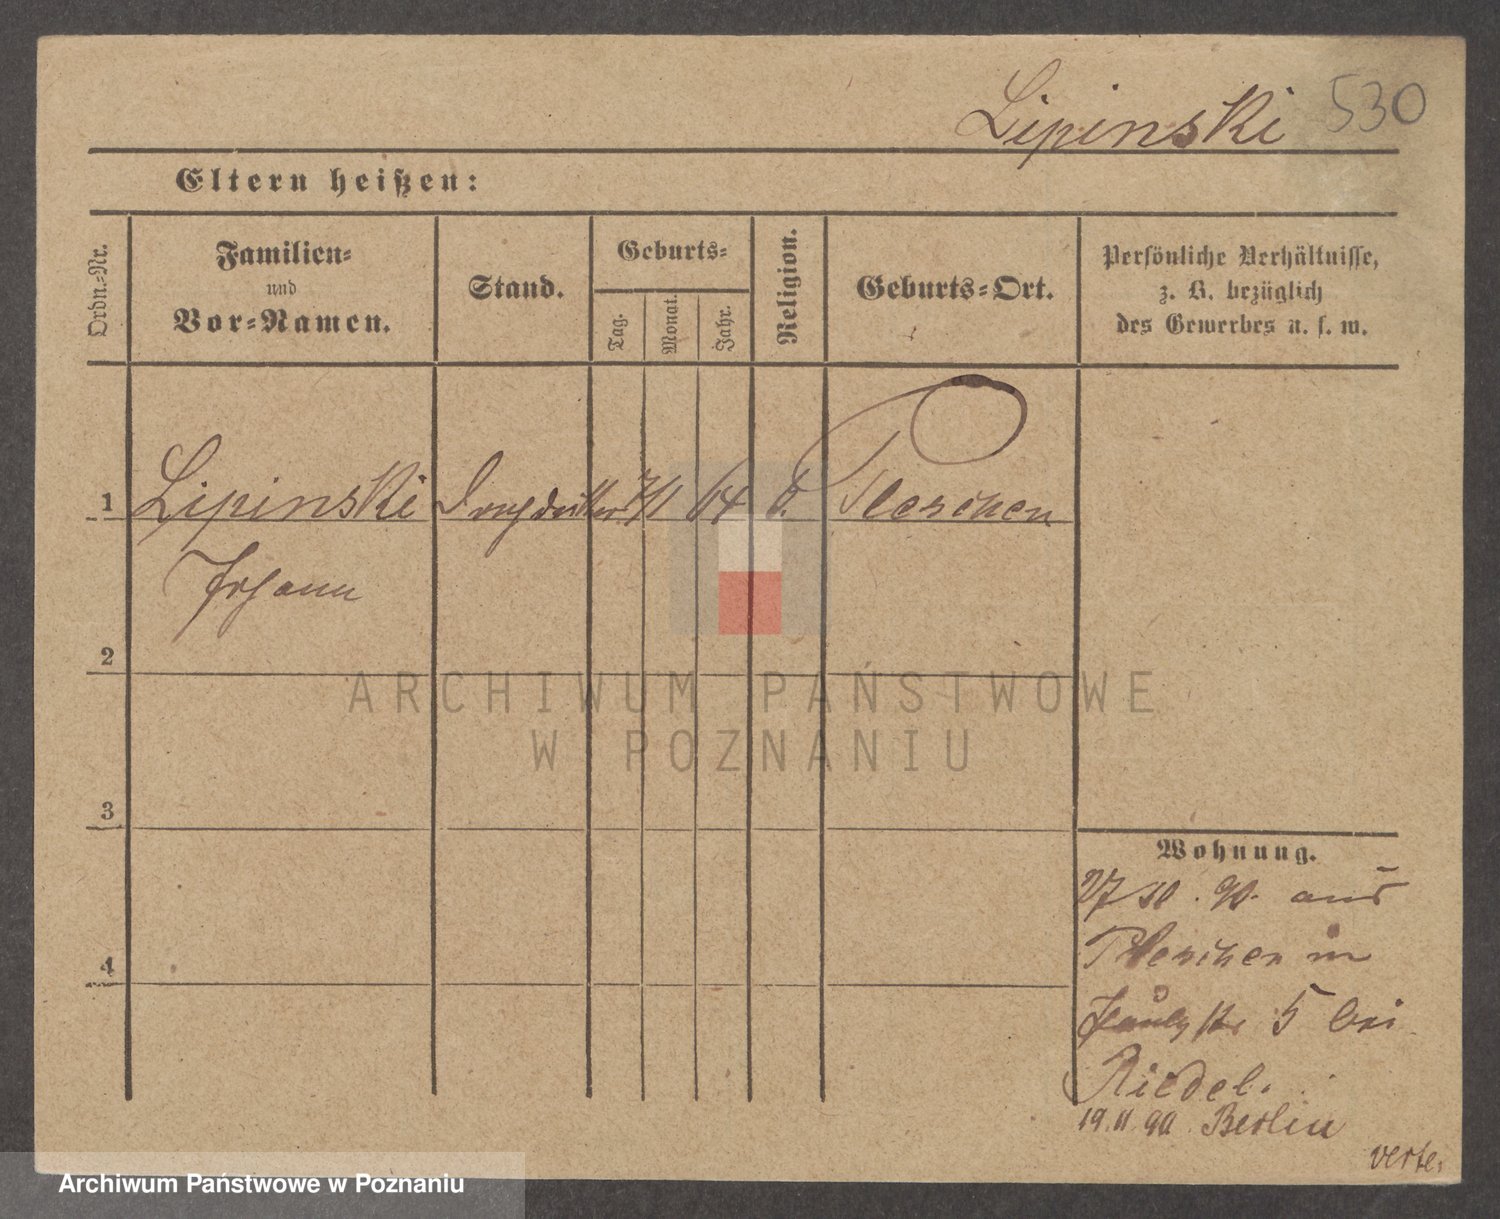 Lipinski 530
Eltern heißen:
Ordn.-Nr.
Familien-
und
Vor-Namen.
Stand.
Geburts-
Tag.
Monat.
Jahr.
Religion.
Geburts-Ort.
Persönliche Verhältnisse,
z. B. bezüglich
des Gewerbes u. s. w.
1 Lipinski 7/1 64 k. Pleschen
Johann
2
ARCHIWUM PAŃSTWOWE
W POZNANIU
3
4
Wohnung.
27 10. 90. aus
Pleschen in
str 5 bei
Riedel.
19.11.90. Berlin
verte.
Archiwum Państwowe w Poznaniu